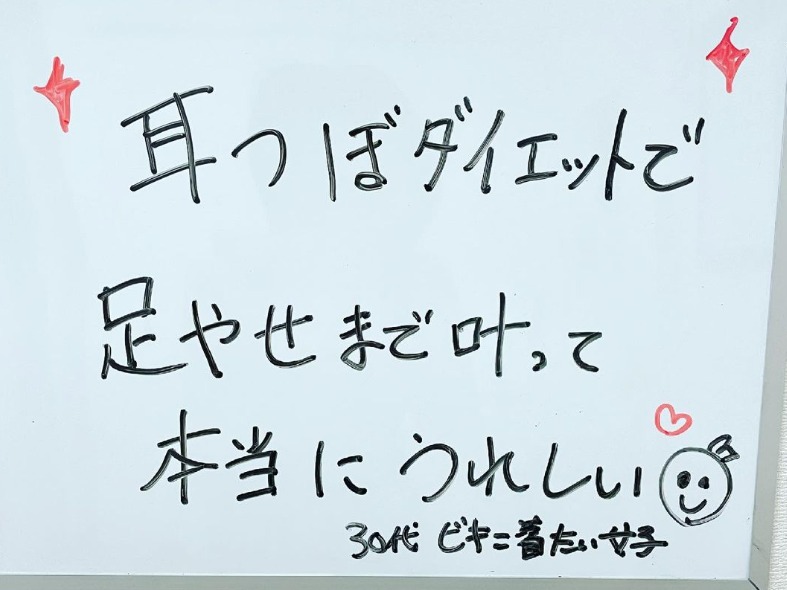 耳つぼダイエットで
足やせまで叶って
本当にうれしい
30代 ビキニ着たい女子